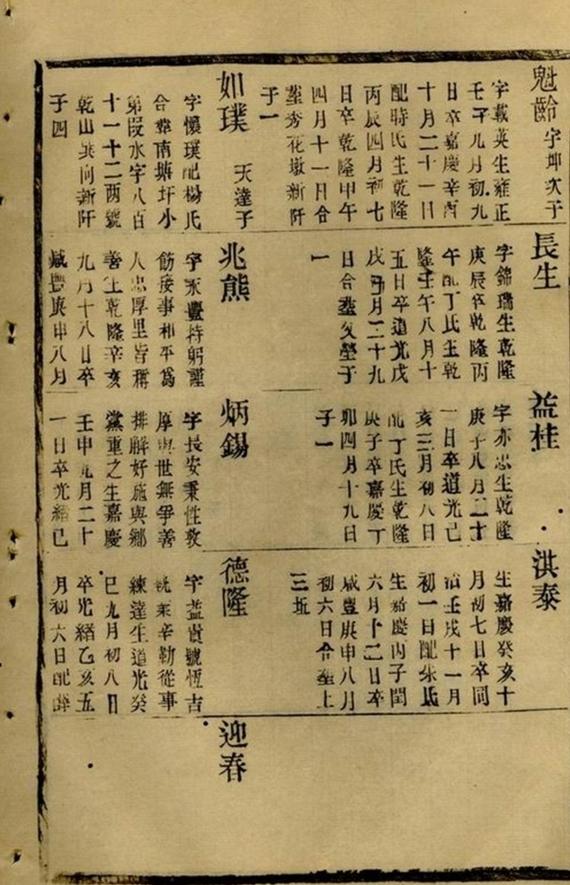 魁齡 字坤次子
字載英生雍正
壬子九月初九
日卒嘉慶辛酉
十月二十一日
配時氏生乾隆
丙辰四月初七
日卒乾隆甲午
四月十一日合
塟秀花墩新阡
子一
如璞 天達子
字懷璞配楊氏
合塟南塘圩小
第段水字八百
十一十二两號
乾山巽向新阡
子四
長生
字錦瑞生乾隆
庚辰卒乾隆丙
午配丁氏生乾
隆壬午八月十
五日卒道光戊
戌月二十九
日合塟父塋子
一
兆熊
字永豐持躬謹
飭接事和平為
人忠厚里皆稱
善生乾隆辛亥
九月十八日卒
咸豐庚申八月
益桂
字亦忠生乾隆
庚子八月二十
一日卒道光己
亥三月初八日
配丁氏生乾隆
庚子卒嘉慶丁
卯四月十九日
子一
炳錫
字長安秉性敦
厚與世無爭善
排解好施與鄉
黨重之生嘉慶
壬申九月二十
一日卒光緒己
洪泰
生嘉慶癸亥十
月初七日卒同
治壬戌十一月
初一日配朱氏
生嘉慶丙子閏
六月十二日卒
咸豐庚申八月
初六日合塟上
三坵
德隆
字益貴號恆吉
秉辛勤從事
練達生道光癸
巳九月初八日
卒光緒乙亥五
月初六日配薛
迎春